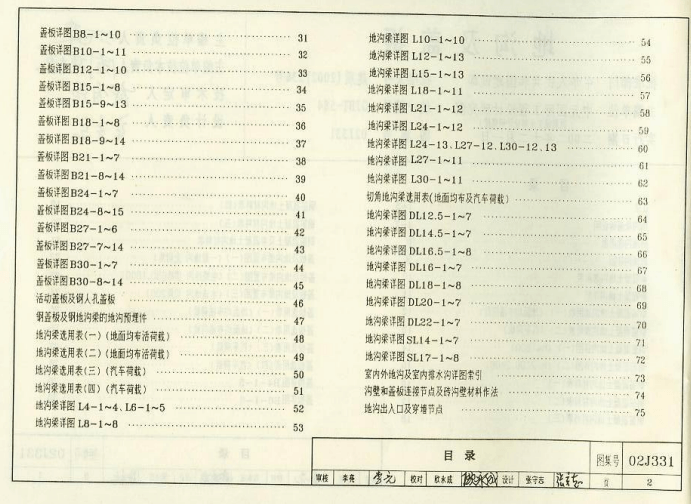 盖板详图B8-1~10 31
盖板详图B10-1~11 32
盖板详图B12-1~10 33
盖板详图B15-1~8 34
盖板详图B15-9~13 35
盖板详图B18-1~8 36
盖板详图B18-9~14 37
盖板详图B21-1~7 38
盖板详图B21-8~14 39
盖板详图B24-1~7 40
盖板详图B24-8~15 41
盖板详图B27-1~6 42
盖板详图B27-7~14 43
盖板详图B30-1~7 44
盖板详图B30-8~14 45
活动盖板及钢人孔盖板 46
钢盖板及钢地沟梁的地沟预埋件 47
地沟梁选用表(一)(地面均布活荷载) 48
地沟梁选用表(二)(地面均布活荷载) 49
地沟梁选用表(三)(汽车荷载) 50
地沟梁选用表(四)(汽车荷载) 51
地沟梁详图 L4-1~4、L6-1~5 52
地沟梁详图 L8-1~8 53
地沟梁详图 L10-1~10 54
地沟梁详图 L12-1~13 55
地沟梁详图 L15-1~13 56
地沟梁详图 L18-1~11 57
地沟梁详图 L21-1~12 58
地沟梁详图 L24-1~12 59
地沟梁详图 L24-13、L27-12、L30-12、13 60
地沟梁详图 L27-1~11 61
地沟梁详图 L30-1~11 62
切角地沟梁选用表(地面均布及汽车荷载) 63
地沟梁详图 DL12.5-1~7 64
地沟梁详图 DL14.5-1~7 65
地沟梁详图 DL16.5-1~8 66
地沟梁详图 DL16-1~7 67
地沟梁详图 DL18-1~8 68
地沟梁详图 DL20-1~7 69
地沟梁详图 DL22-1~7 70
地沟梁详图 SL14-1~7 71
地沟梁详图 SL17-1~8 72
室内外地沟及室内排水沟详图索引 73
沟壁和盖板连接节点及砖沟壁材料作法 74
地沟出入口及穿墙节点 75
目录 图集号 02J331
审核 李亮 校对 设计 张守志 页 2